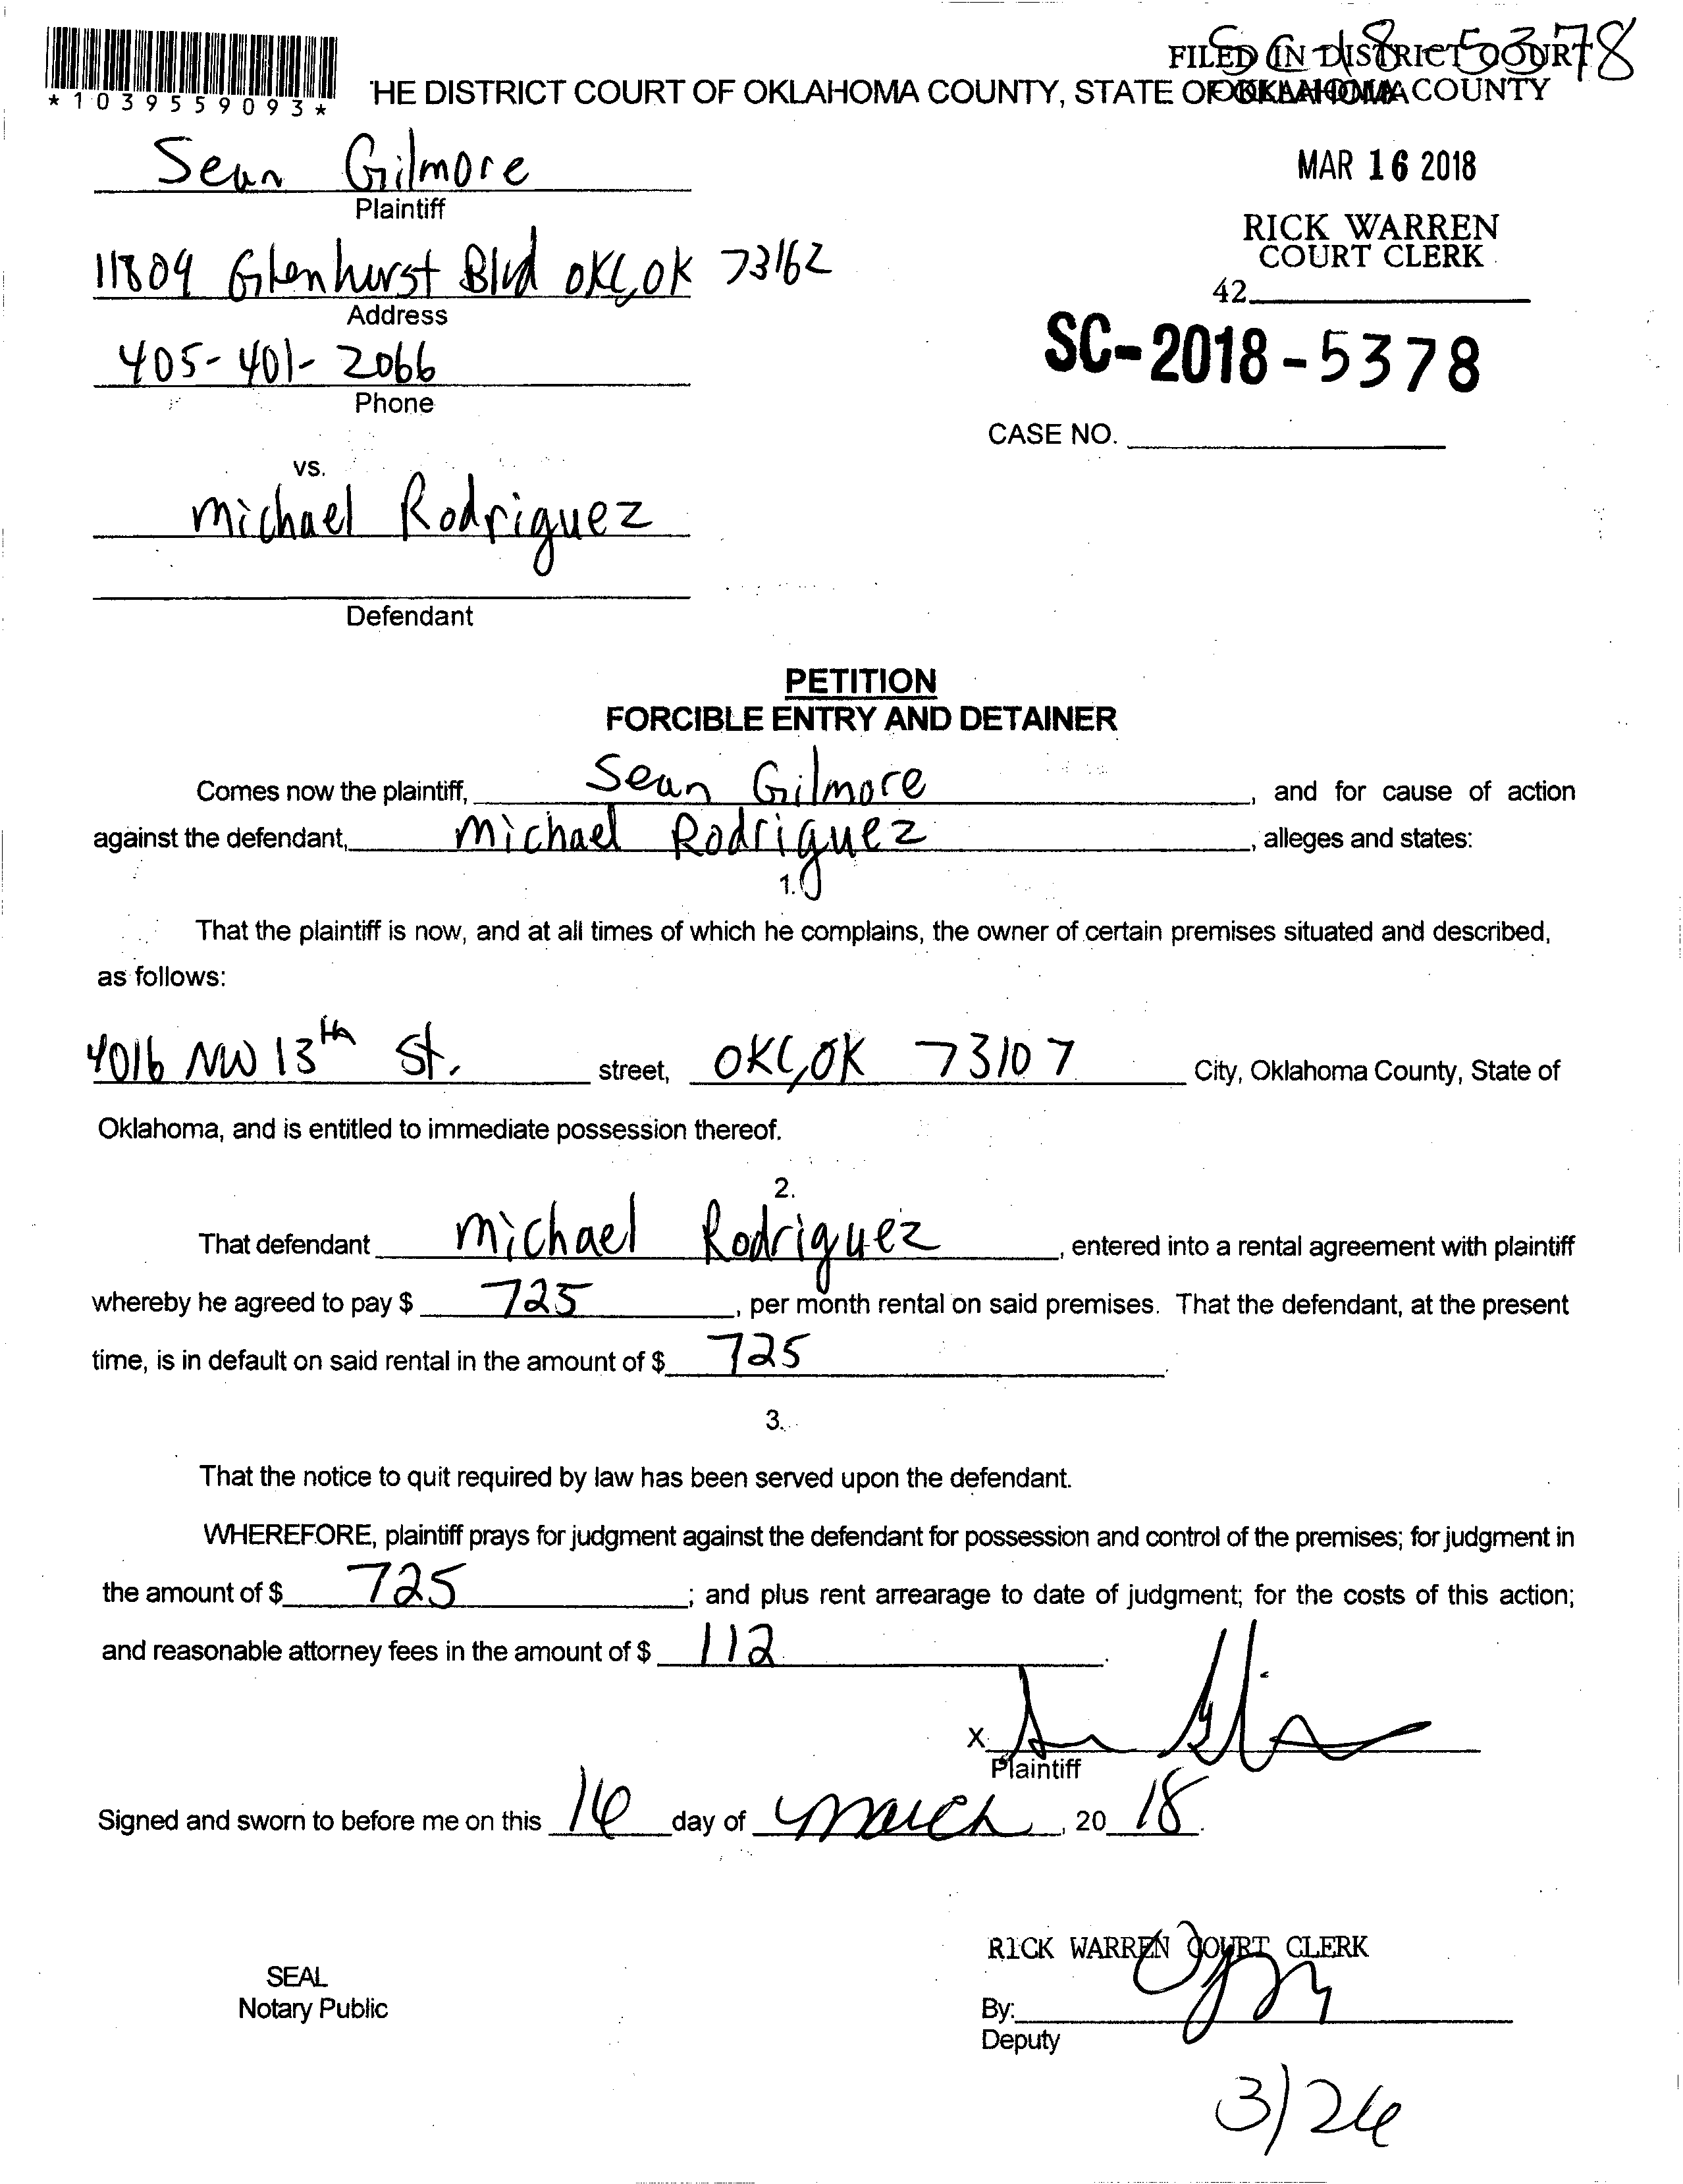 SC-18-5378
FILED IN DISTRICT COURT
*1039559093*
HE DISTRICT COURT OF OKLAHOMA COUNTY, STATE OF OKLAHOMA
OKLAHOMA COUNTY
Sean Gilmore
Plaintiff
MAR 16 2018
RICK WARREN
COURT CLERK
11809 Glenhurst Blvd OKC, OK 73162
Address
42
405-401-2066
Phone
SC-2018-5378
CASE NO.
vs.
Michael Rodriguez
Defendant
PETITION
FORCIBLE ENTRY AND DETAINER
Comes now the plaintiff, Sean Gilmore, and for cause of action
against the defendant, Michael Rodriguez, alleges and states:
1.
That the plaintiff is now, and at all times of which he complains, the owner of certain premises situated and described,
as follows:
4016 NW 13th St. street, OKC, OK 73107 City, Oklahoma County, State of
Oklahoma, and is entitled to immediate possession thereof.
2.
That defendant Michael Rodriguez, entered into a rental agreement with plaintiff
whereby he agreed to pay $ 725, per month rental on said premises. That the defendant, at the present
time, is in default on said rental in the amount of $ 725.
3.
That the notice to quit required by law has been served upon the defendant.
WHEREFORE, plaintiff prays for judgment against the defendant for possession and control of the premises; for judgment in
the amount of $ 725; and plus rent arrearage to date of judgment; for the costs of this action;
and reasonable attorney fees in the amount of $ 112.
X
Plaintiff
Signed and sworn to before me on this 16 day of March, 20 18.
RICK WARREN COURT CLERK
SEAL
Notary Public
By:
Deputy
3/26